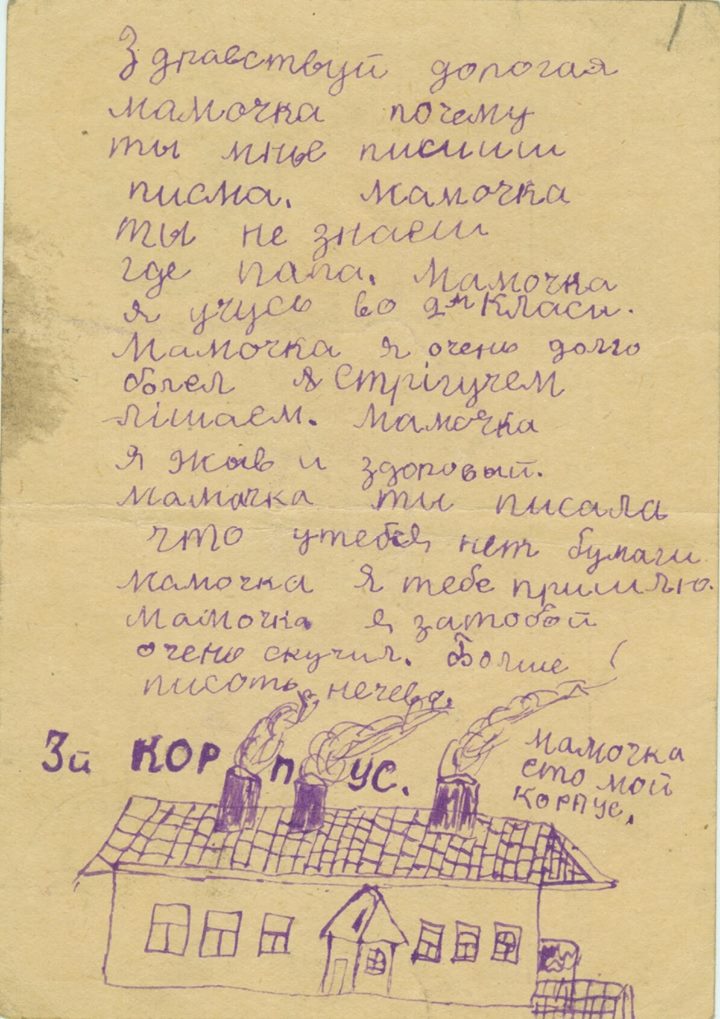 Здравствуй дорогая
мамочка почему
ты мнье писииш
писма. мамочка
ты не знаеш
где папа. Мамочка
я учусь во 2м Класи.
Мамочка я очень долго
болел я Стрігучем
лішаєм. мамочка
я жыв и здоровый.
мамочка ты писала
что утебя нет бумаги
мамочка я тебе пришлью.
мамочка я затобой
очень скучил. Болше
писоть нечево.
3й КОРПУС.
мамочка
ето мой
корпус.